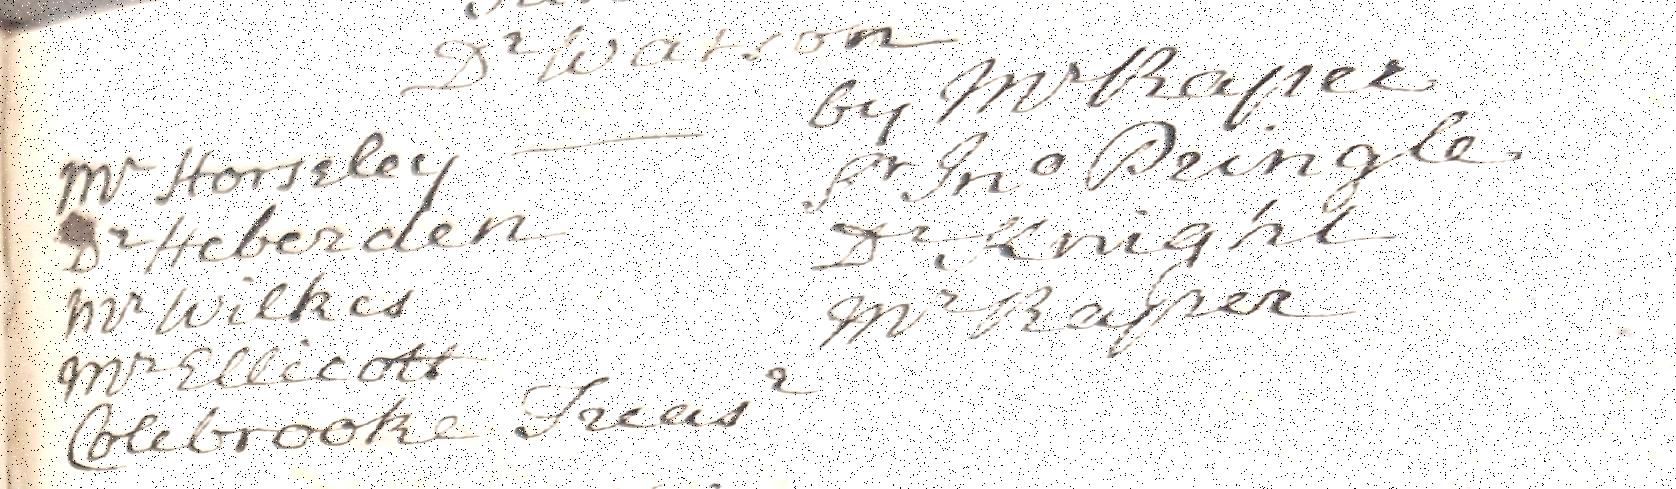 Dr Watson
Mr Horseley by Mr Raper
Dr Heberden Sr Jno Pringle
Mr Wilkes Dr Knight
Mr Ellicott Mr Raper
Colebrooke Treasr